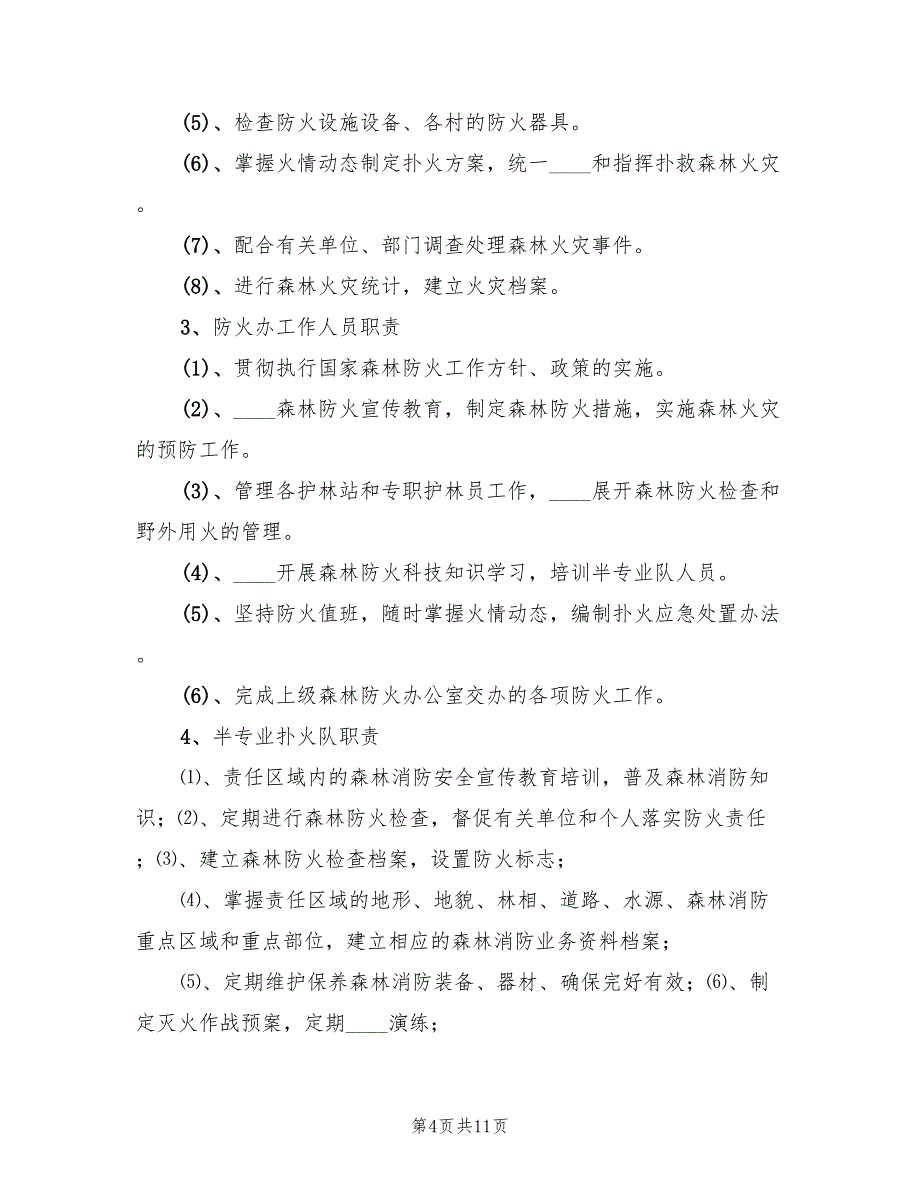 (5)、检查防火设施设备、各村的防火器具。
(6)、掌握火情动态制定扑火方案，统一____和指挥扑救森林火灾
。
(7)、配合有关单位、部门调查处理森林火灾事件。
(8)、进行森林火灾统计，建立火灾档案。
3、防火办工作人员职责
(1)、贯彻执行国家森林防火工作方针、政策的实施。
(2)、____森林防火宣传教育，制定森林防火措施，实施森林火灾
的预防工作。
(3)、管理各护林站和专职护林员工作，____展开森林防火检查和
野外用火的管理。
(4)、____开展森林防火科技知识学习，培训半专业队人员。
(5)、坚持防火值班，随时掌握火情动态，编制扑火应急处置办法
。
(6)、完成上级森林防火办公室交办的各项防火工作。
4、半专业扑火队职责
⑴、责任区域内的森林消防安全宣传教育培训，普及森林消防知
识；⑵、定期进行森林防火检查，督促有关单位和个人落实防火责任
；⑶、建立森林防火检查档案，设置防火标志；
⑷、掌握责任区域的地形、地貌、林相、道路、水源、森林消防
重点区域和重点部位，建立相应的森林消防业务资料档案；
⑸、定期维护保养森林消防装备、器材、确保完好有效；⑹、制
定灭火作战预案，定期____演练；
第4页共11页